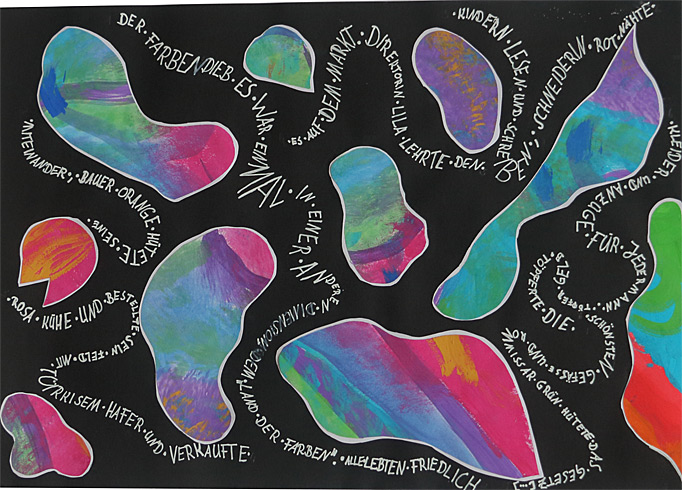 DER·FARBENDIEB·ES·WAR·EINMAL·IN·EINER·ANDEREN·DIMENSION,·DEM·"LAND·DER·FARBEN".·ALLE·LEBTEN·FRIEDLICH
MITEINANDER;·BAUER·ORANGE·HÜTETE·SEINE·
ROSA·KÜHE·UND·BESTELLTE·SEIN·FELD·MIT·
TÜRKISEM·HAFER·UND·VERKAUFTE·
·ES·AUF·DEM·MARKT.·DIREKTORIN·LILA·LEHRTE·DEN·
·KINDERN·LESEN·UND·SCHREIBEN;·SCHNEIDERIN·ROT·NÄHTE·
KLEIDER·UND·ANZÜGE·FÜR·JEDERMANN;·TÖPFER·GELB·
TÖPFERTE·DIE·SCHÖNSTEN·GEFÄSSE·UND·
KOMMISSAR·GRÜN·HÜTETE·DAS·GESETZ(...)